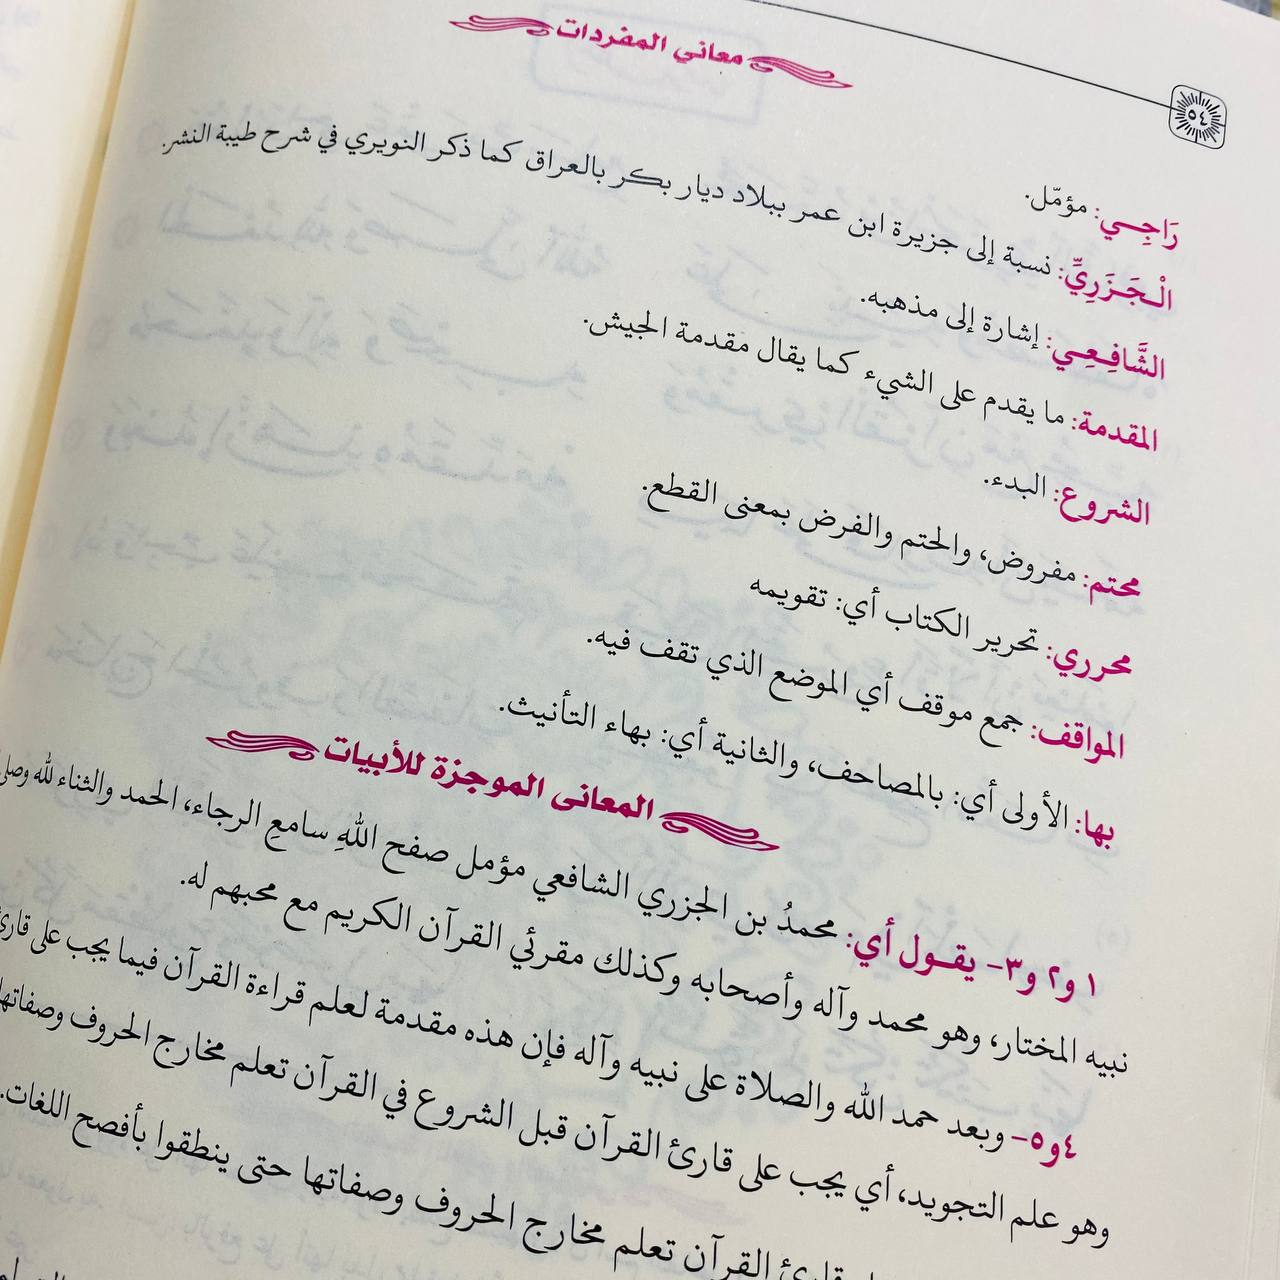 ٥٤
معاني المفردات
رَاجِـي: مؤمّل.
الْـجَـزَرِيِّ: نسبة إلى جزيرة ابن عمر ببلاد ديار بكر بالعراق كما ذكر النويري في شرح طيبة النشر.
الشَّافِـعِـي: إشارة إلى مذهبه.
المقدمة: ما يقدم على الشيء كما يقال مقدمة الجيش.
الشروع: البدء.
محتم: مفروض، والحتم والفرض بمعنى القطع.
محرري: تحرير الكتاب أي: تقويمه
المواقف: جمع موقف أي الموضع الذي تقف فيه.
بها: الأولى أي: بالمصاحف، والثانية أي: بهاء التأنيث.
المعانى الموجزة للأبيات
١ و٢ و٣- يقـول أي: محمدُ بن الجزري الشافعي مؤمل صفح اللهِ سامعِ الرجاء، الحمد والثناء لله وصلى
نبيه المختار، وهو محمد وآله وأصحابه وكذلك مقرئي القرآن الكريم مع محبهم له.
٤ و٥- وبعد حمد الله والصلاة على نبيه وآله فإن هذه مقدمة لعلم قراءة القرآن فيما يجب على قارئ
وهو علم التجويد، أي يجب على قارئ القرآن قبل الشروع في القرآن تعلم مخارج الحروف وصفاتها
قارئ القرآن تعلم مخارج الحروف وصفاتها حتى ينطقوا بأفصح اللغات.